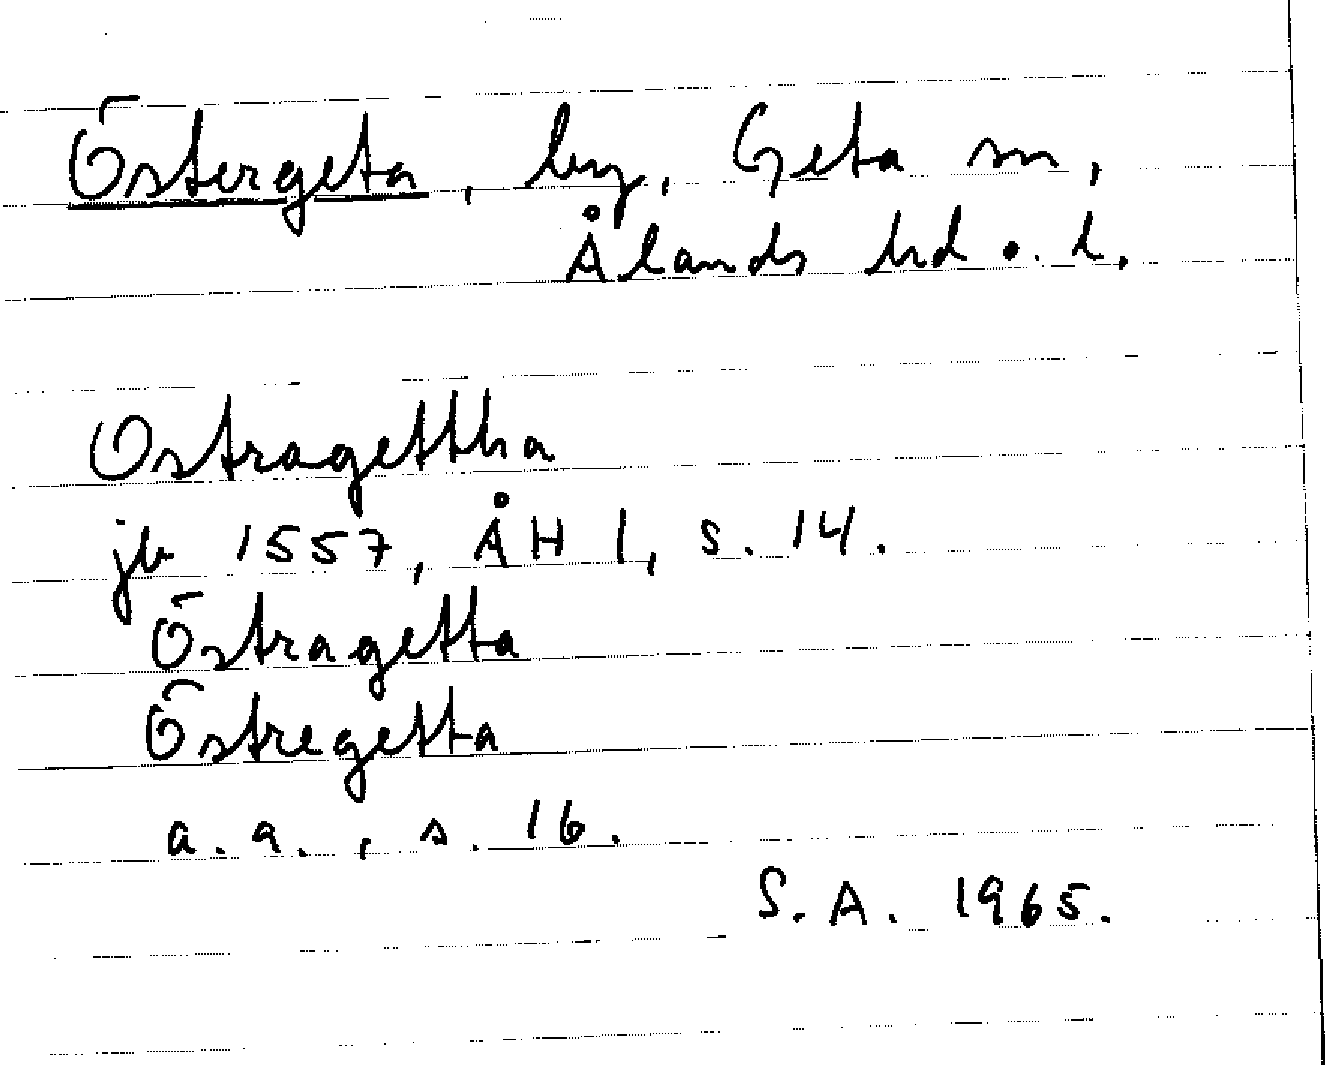 Östergeta, by, Geta sn,
Ålands hd o. l.
Ostragettha
jb 1557, ÅH 1, s. 14.
Östragetta
Östregetta
a. a., s. 16.
S. A. 1965.